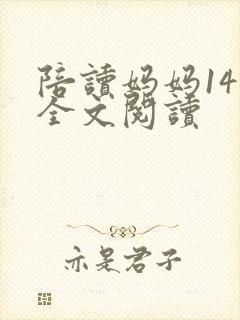 陪讀妈妈14
全文閱讀
亦是君子